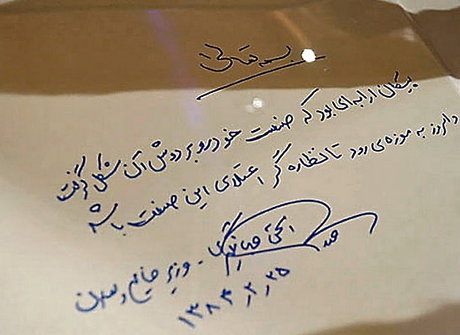 بسمه تعالی
پیکان ارابه‌ای بود که صنعت خودرو بر دوش آن شکل گرفت
و امروز به موزه می رود تا نظاره گر اعتلای این صنعت باشد
اسحق جهانگیری - وزیر صنایع و معادن
۱۳۸۴,۲,۲۵